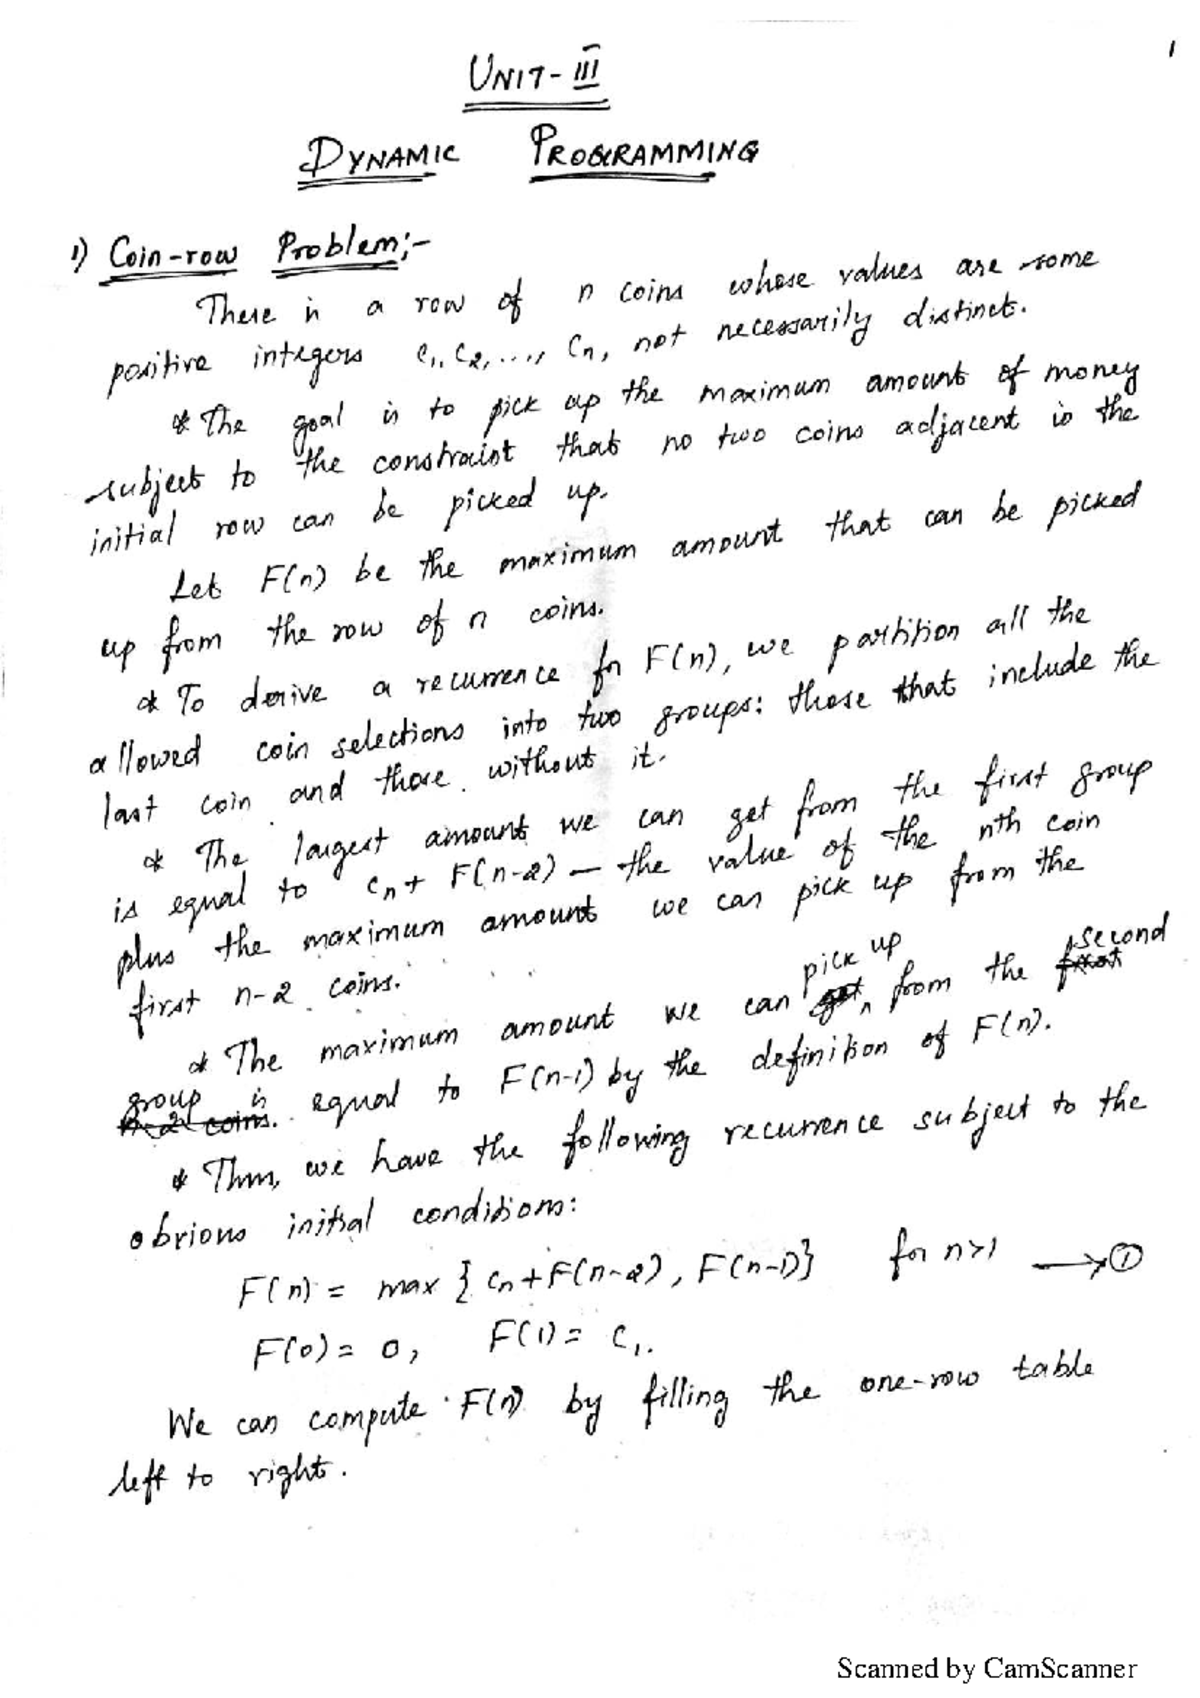 1
UNIT-III
DYNAMIC PROGRAMMING
1) Coin-row Problem:-
There is a row of n coins whose values are some
positive integers c1, c2, ..., cn, not necessarily distinct.
* The goal is to pick up the maximum amount of money
subject to the constraint that no two coins adjacent in the
initial row can be picked up.
Let F(n) be the maximum amount that can be picked
up from the row of n coins.
* To derive a recurrence for F(n), we partition all the
allowed coin selections into two groups: those that include the
last coin and those without it.
* The largest amount we can get from the first group
is equal to cn + F(n-2) — the value of the nth coin
plus the maximum amount we can pick up from the
first n-2 coins.
* The maximum amount we can pick up from the second
group is equal to F(n-1) by the definition of F(n).
* Thus, we have the following recurrence subject to the
obvious initial conditions:
F(n) = max { cn + F(n-2), F(n-1)} for n>1 → ①
F(0) = 0, F(1) = c1.
We can compute F(n) by filling the one-row table
left to right.
Scanned by CamScanner